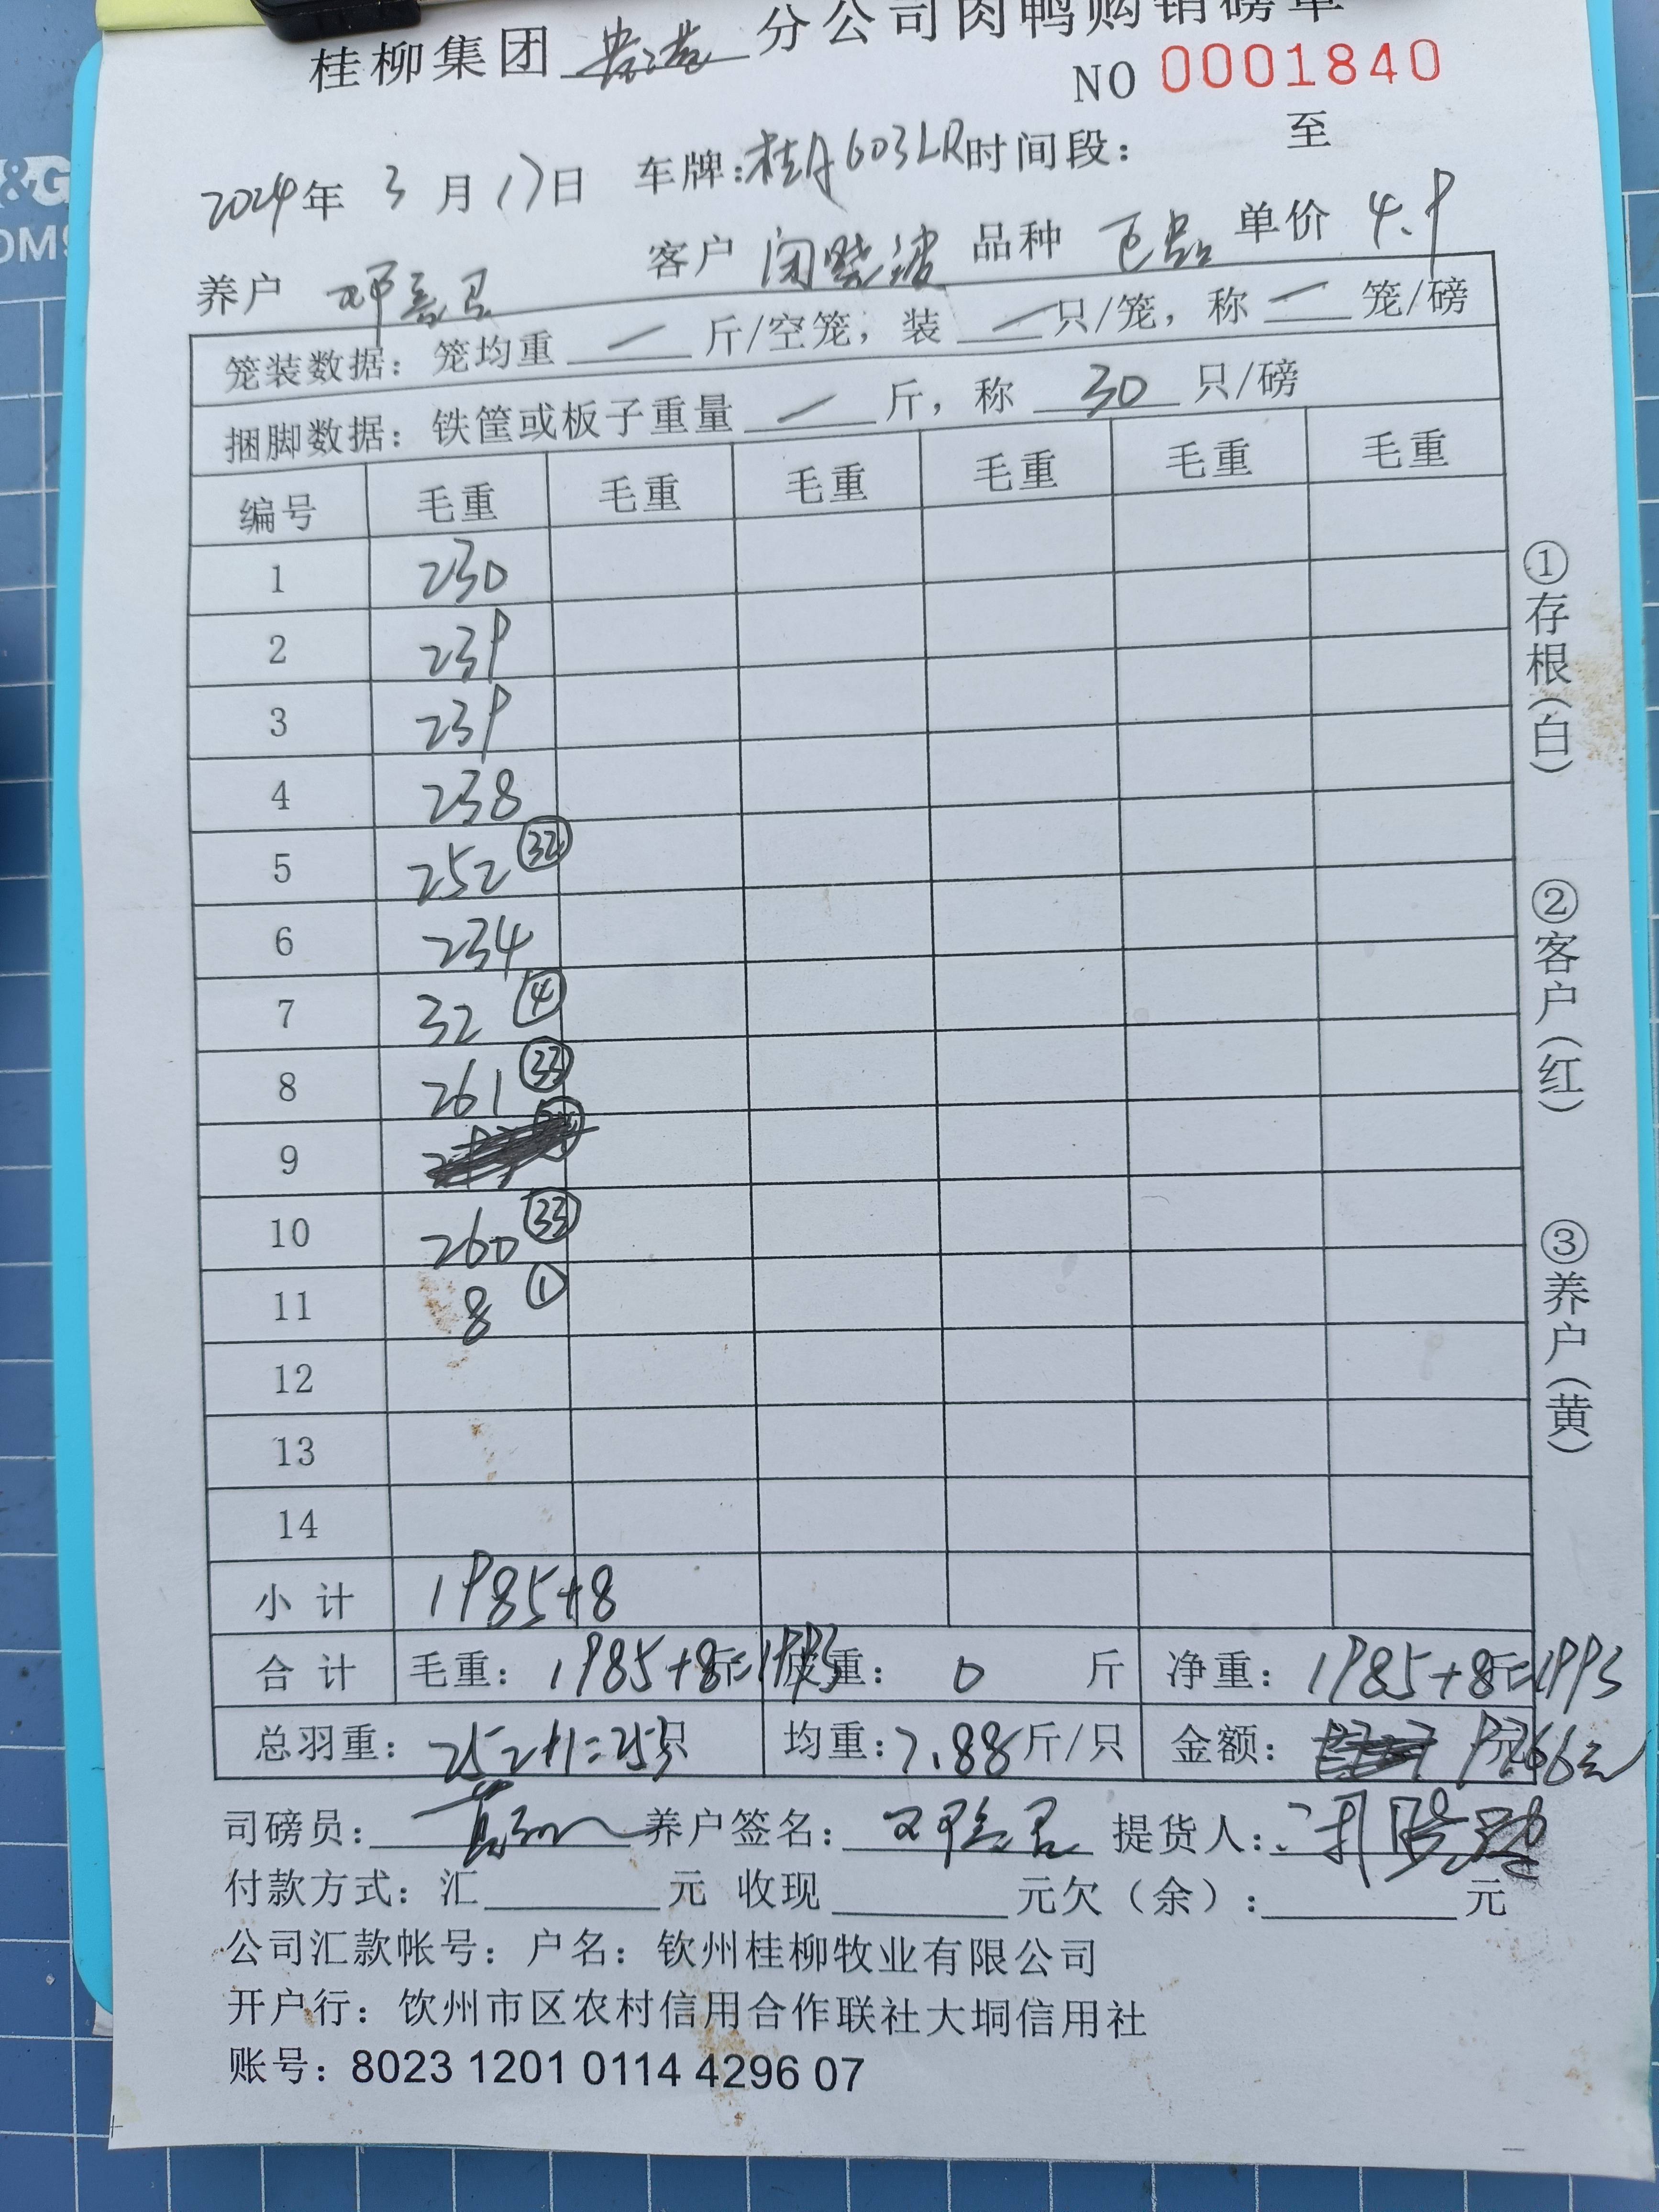 桂柳集团 贵港 分公司肉鸭购销磅单
NO 0001840
2024年 3月17日 车牌:桂A603LR 时间段: 至
养户 邓 客户 闭晓波 品种 单价 4.9
笼装数据：笼均重 / 斤/空笼，装 / 只/笼，称 / 笼/磅
捆脚数据：铁筐或板子重量 / 斤，称 30 只/磅
编号 毛重 毛重 毛重 毛重 毛重 毛重
1 230
2 239
3 239
4 238
5 252 ㉜
6 234
7 32 ④
8 261 ㉝
9
10 260 ㉝
11 8 ①
12
13
14
小计 1985+8
合计 毛重：1985+8斤=1993 皮重：0 斤 净重：1985+8斤=1993
总羽重：252+1=253只 均重：7.88斤/只 金额：9766元
司磅员: 养户签名: 提货人:
付款方式：汇 元 收现 元欠（余）: 元
公司汇款帐号：户名：钦州桂柳牧业有限公司
开户行：饮州市区农村信用合作联社大垌信用社
账号：8023 1201 0114 4296 07
①存根（白）
②客户（红）
③养户（黄）
&G
DM9